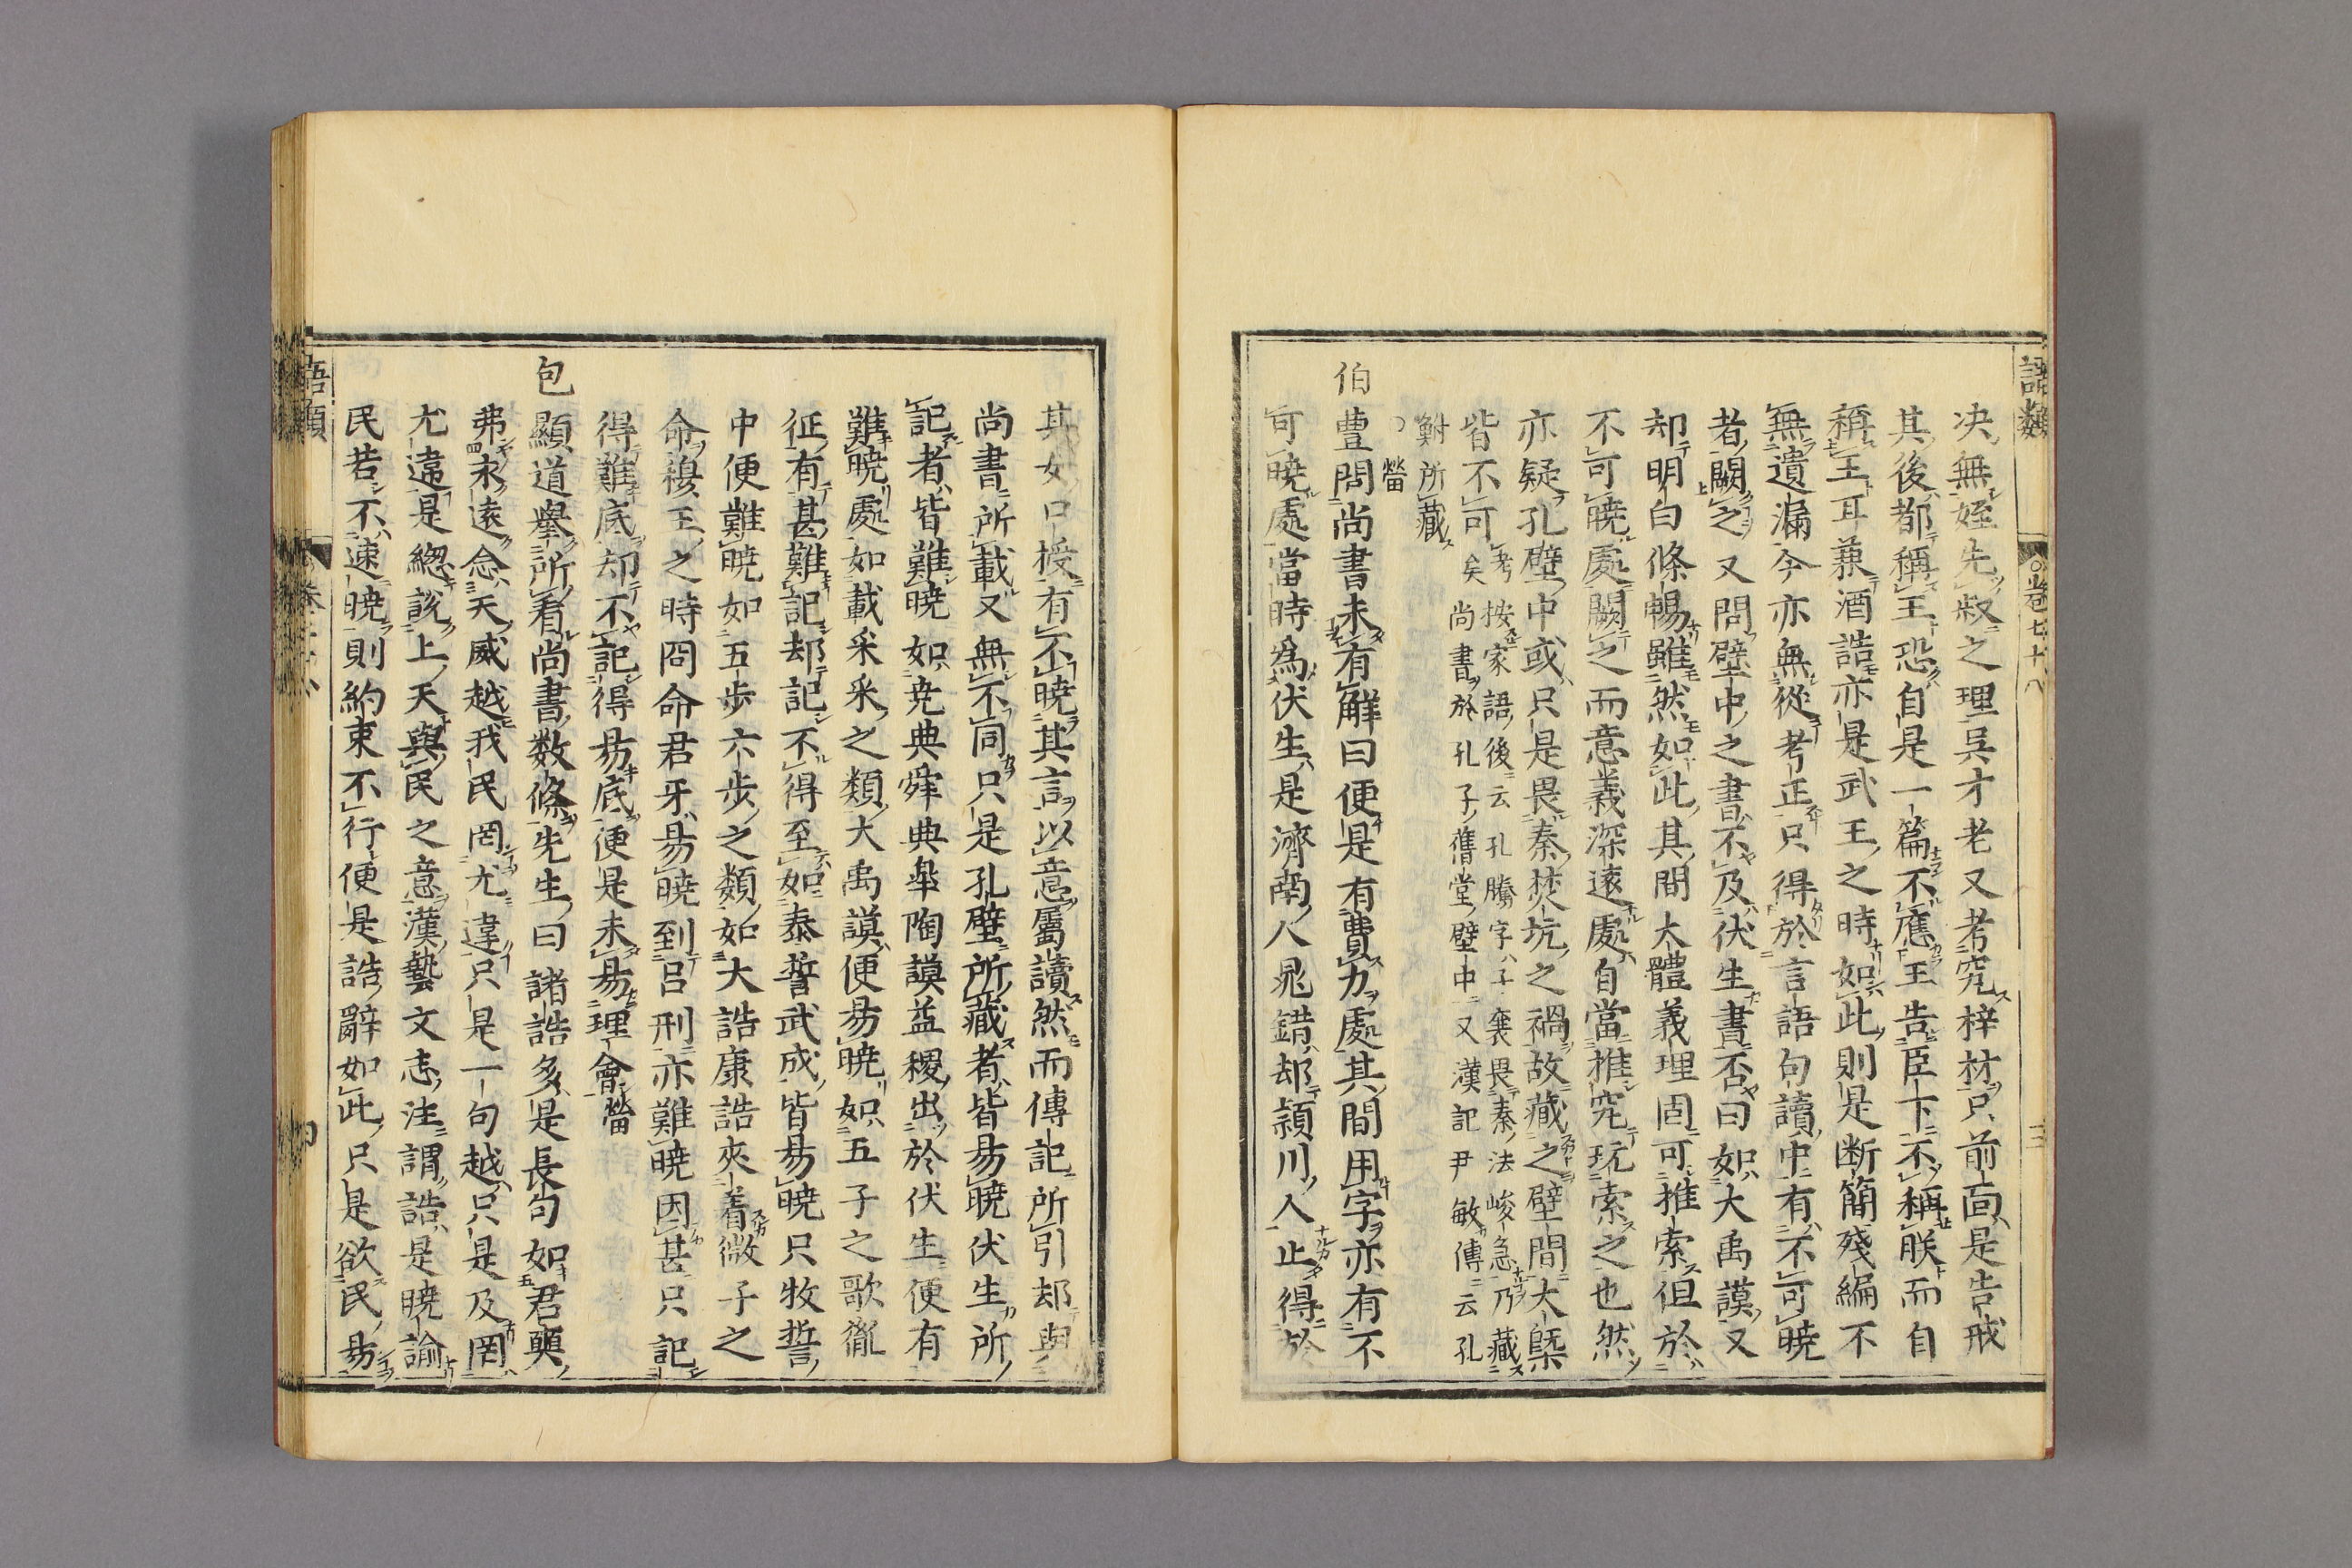 語類 卷七十八 三
决無姪先叔之理吳才老又考究梓材只前面是告戒
其後都稱王恐自是一篇不應王告臣下不稱朕而自
稱王耳兼酒誥亦是武王之時如此則是断簡殘編不
無遺漏今亦無從考正只得於言語句讀中有不可曉
者闕之又問壁中之書不及伏生書否曰如大禹謨又
却明白條暢雖然如此其間大體義理固可推索但於
不可曉處闕之而意義深遠處自當推究玩索之也然
亦疑孔壁中或只是畏秦焚坑之禍故藏之壁間大槩
皆不可考按家語後云孔騰字子襄畏秦法峻急乃藏
矣尚書於孔子舊堂壁中又漢記尹敏傳云孔
鮒所藏
䕃
伯豊問尚書未有解曰便是有費力處其間用字亦有不
可曉處當時為伏生是濟南人晁錯却潁川人止得於
其女口授有不曉其言以意屬讀然而傳記所引却與
尚書所載又無不同只是孔壁所藏者皆易曉伏生所
記者皆難曉如尭典舜典皐陶謨益稷出於伏生便有
難曉處如載采采之類大禹謨便易曉如五子之歌胤
征有甚難記却記不得至如泰誓武成皆易曉只牧誓
中便難曉如五步六步之類如大誥康誥夾着微子之
命穆王之時冏命君牙易曉到呂刑亦難曉因甚只記
得難底却不記得易底便是未易理會䕃
包顯道擧所看尚書数條先生曰諸誥多是長句如君奭
弗永遠念天威越我民罔尤違只是一句越只是及罔
尤違是緫說上天與民之意漢藝文志注謂誥是曉諭
民若不速曉則約束不行便是誥辭如此只是欲民易
語類